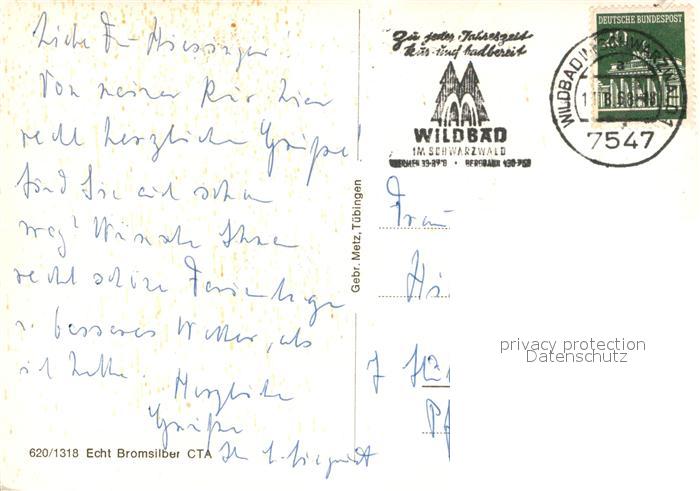 Liebe Fr. Miessinger!
Von meiner Kur hier
recht herzliche Grüße!
Sind Sie auch schon
weg? Wünsche Ihnen
recht schöne Ferientage
u. besseres Wetter, als
ich hatte.
Herzliche
Grüße
Ihr
620/1318 Echt Bromsilber CTA
Gebr. Metz, Tübingen
Zu jeder Jahreszeit
kur- und badbereit
WILDBAD
IM SCHWARZWALD
THERMEN BERGBAHN
DEUTSCHE BUNDESPOST
WILDBAD IM SCHWARZWALD
a
7547
Frau
7
privacy protection
Datenschutz